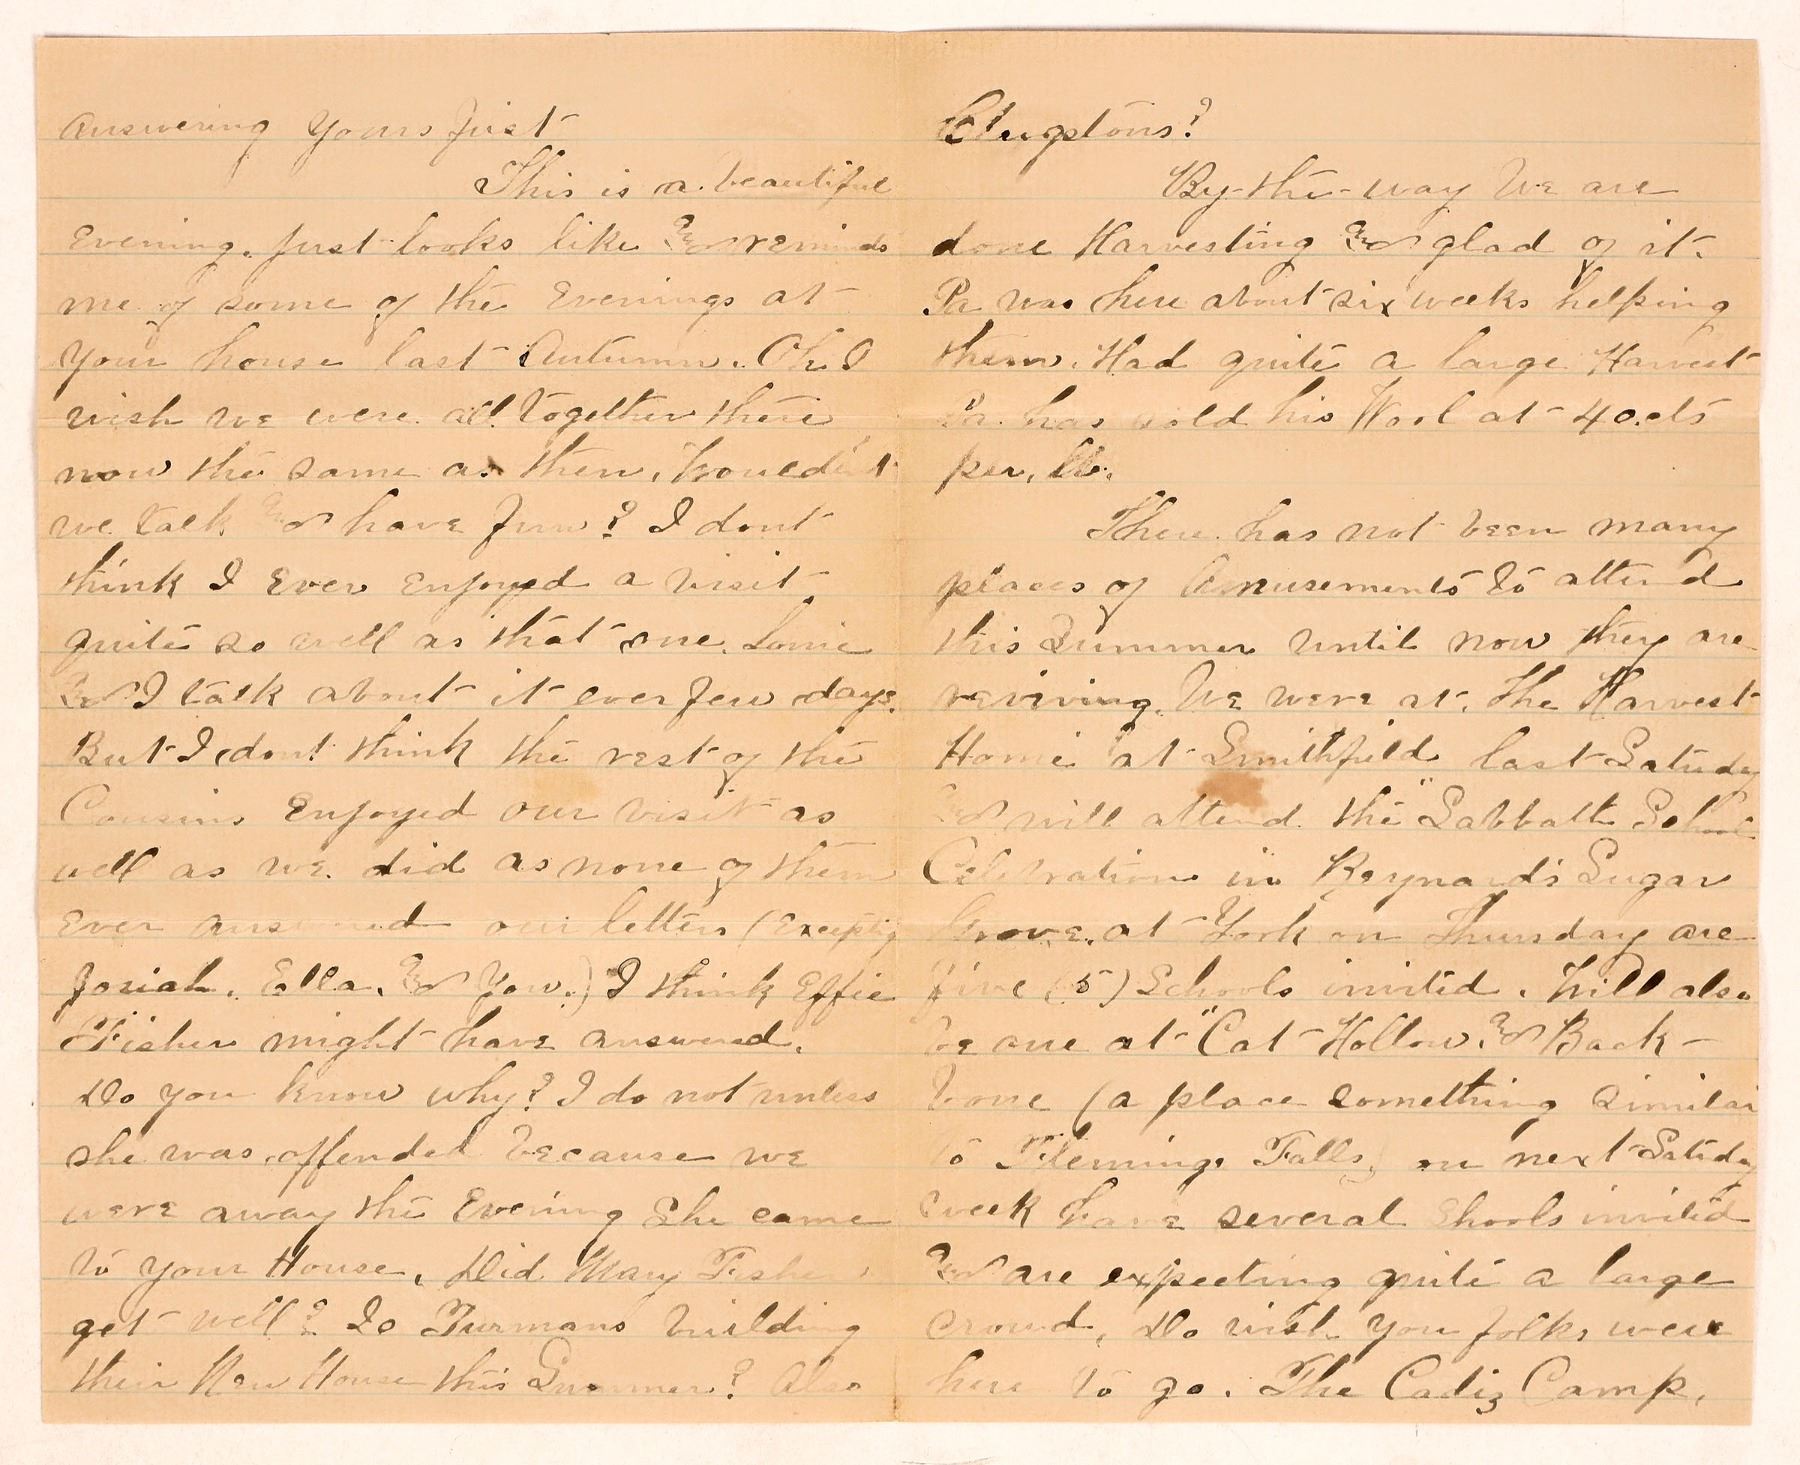 Answering Yours first
This is a beautiful
Evening. Just looks like & reminds
me of some of the Evenings at
your house last Autumn. Oh. I
wish we were all together there
now the same as then, Would'nt
we talk & have fun? I dont
think I Ever Enjoyed a visit
quite so well as that one.
& I talk about it ever few days.
But I dont think the rest of the
Cousins Enjoyed our visit as
well as we did as none of them
Ever answered our letters (Exceptig
Josiah. Ella. & You.) I think Effie
Fisher might have answered.
Do you know why? I do not unless
she was offended because we
were away the Evening She came
to your House. Did Mary Fisher
get well? Is Furmans building
their New House this Summer? Also
Clugstons?
By-the-way We are
done Harvesting & glad of it.
Pa was here about six weeks helping
them. Had quite a large Harvest
Pa. has sold his Wool at 40.cts
per. lb.
There has not been many
places of Amusements to attend
this Summer until now they are
reviving. We were at. the Harvest
Home at Smithfield last Satuday
& will attend the "Sabbath School
Celebration in Reynard's Sugar
Grove. at York on Thursday are
five (5) Schools invited. Will also
be one at "Cat Hollow. & Back-
bone (a place something similar
to Flemings Falls) on next Satuday
week have several Shools invited
& are expecting quite a large
crowd. Do wish you folks were
here to go. The Cadiz Camp.